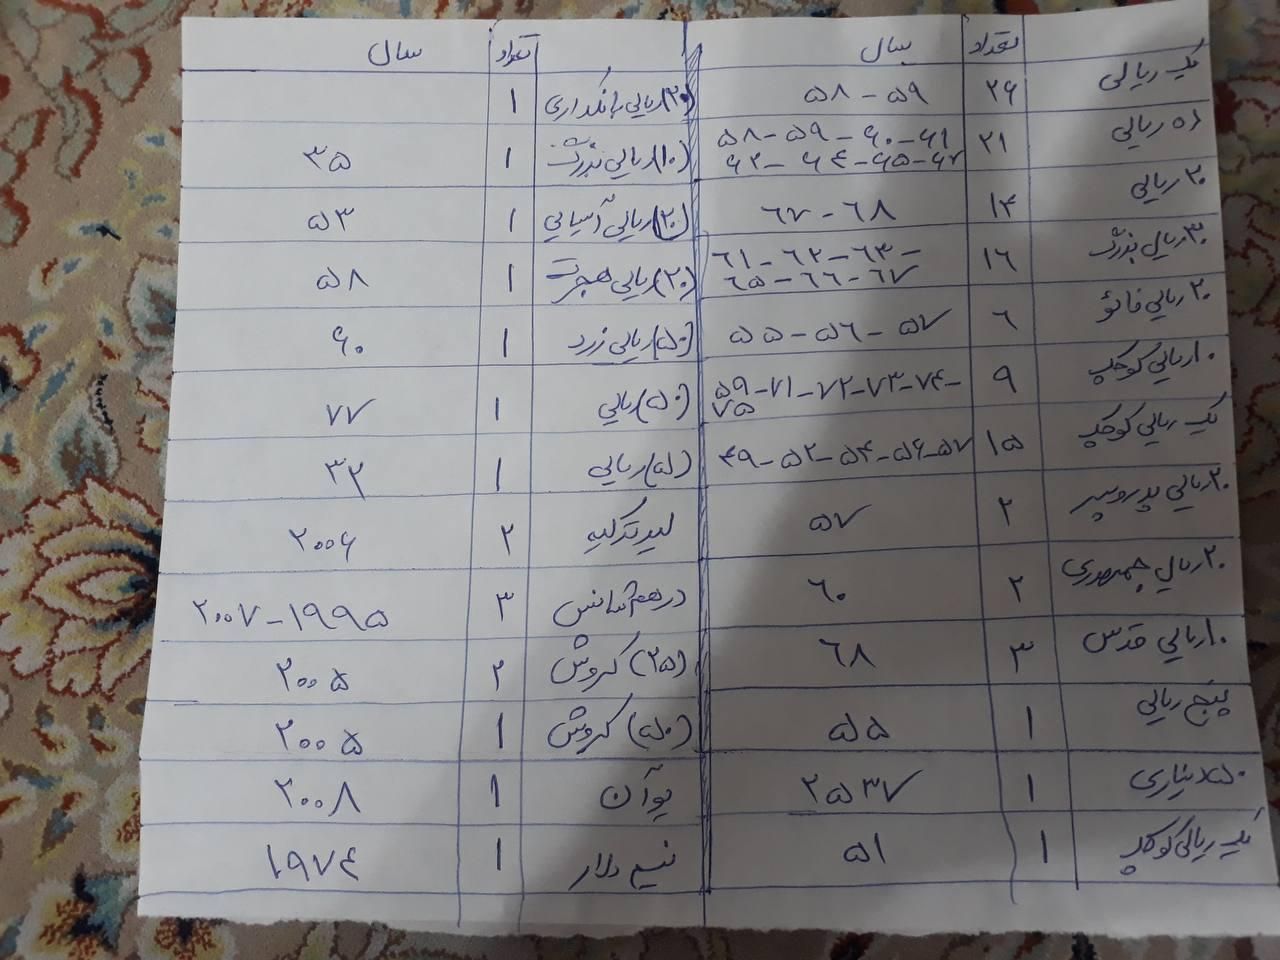 تعداد سال
یک ریالی ۲۶ ۵۸ - ۵۹
۵ ریالی ۲۱ ۵۸-۵۹-۶۰-۶۱
۶۲-۶۴-۶۵-۶۷
۲۰ ریالی ۱۴ ۶۷-۶۸
۲۰ ریال بزرگ ۱۶ ۶۱-۶۲-۶۳-
۶۵-۶۶-۶۷
۲۰ ریالی فائو ۶ ۵۵-۵۶-۵۷
۱۰ ریالی کوچک ۹ ۵۹-۷۱-۷۲-۷۳-۷۴-
۷۵
یک ریالی کوچک ۱۵ ۴۹-۵۲-۵۴-۵۶-۵۷
۲۰ ریالی پدر و پسر ۲ ۵۷
۲۰ ریالی جمهوری ۲ ۶۰
۱۰ ریالی قدس ۳ ۶۸
پنج ریالی ۱ ۵۵
۵۰ دیناری ۱ ۲۵۳۷
یک ریالی کوچک ۱ ۵۱
تعداد سال
(۲۰) ریالی بانکداری ۱
(۱۰) ریالی بزرگ ۱ ۳۵
(۲۰) ریالی آسیایی ۱ ۵۳
(۲۰) ریالی هجرت ۱ ۵۸
(۵۰) ریالی زرد ۱ ۶۰
(۵۰) ریالی ۱ ۷۷
(۵) ریالی ۱ ۳۲
لیر ترکیه ۲ ۲۰۰۶
درهم شانس ۳ ۱۹۹۵-۲۰۰۷
(۲۵) کروش ۲ ۲۰۰۵
(۵۰) کروش ۱ ۲۰۰۵
یوآن ۱ ۲۰۰۸
نیم دلار ۱ ۱۹۷۴